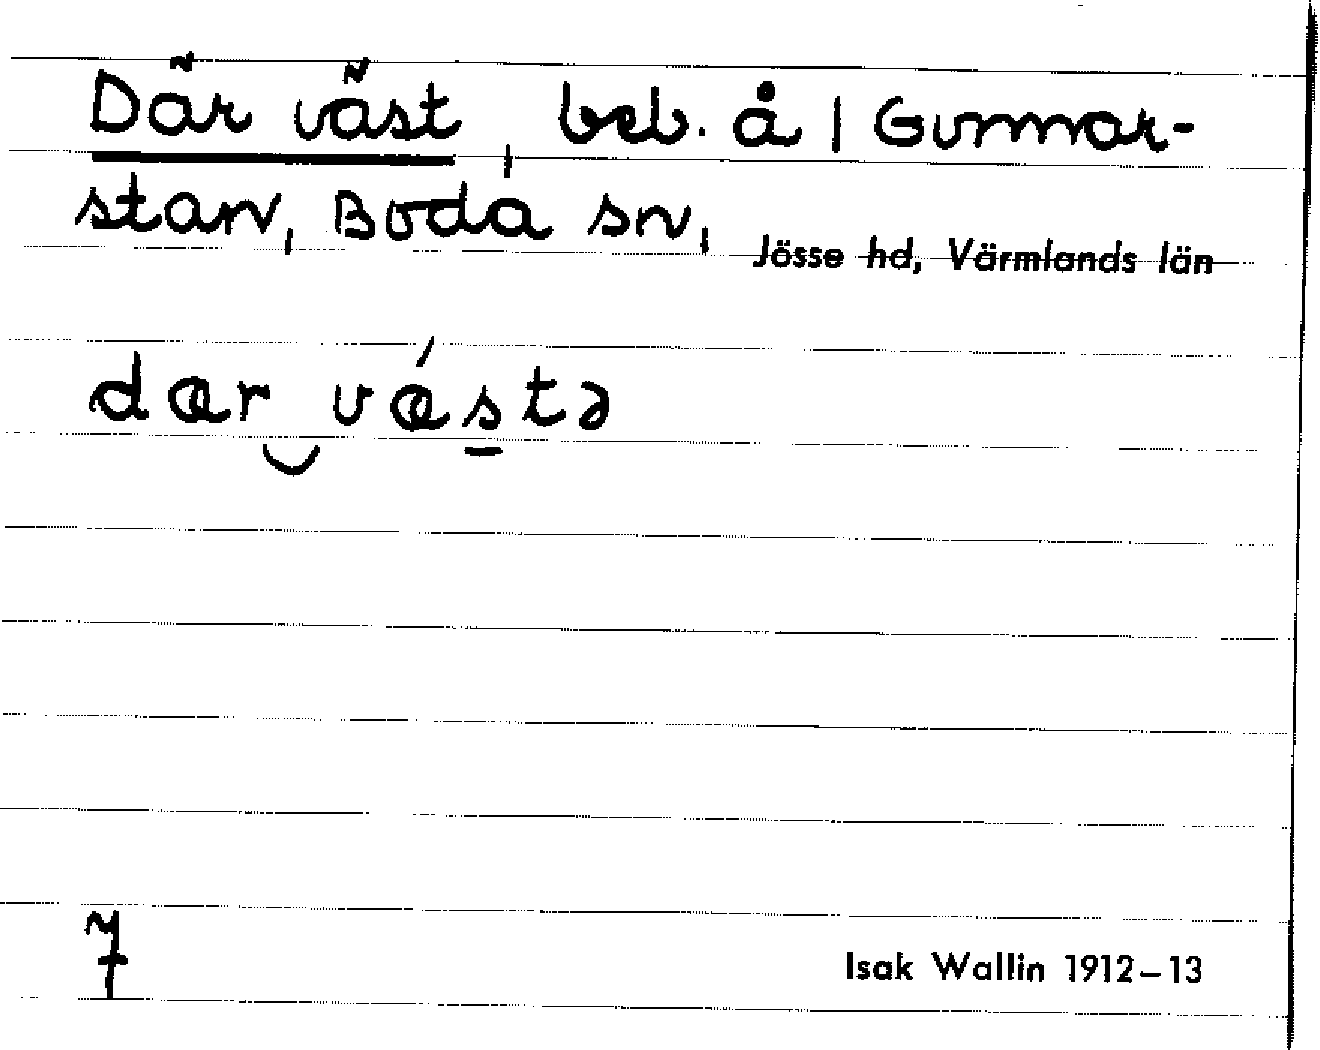 Där väst, beb. å 1 Gunnar-
stan, Boda sn, Jösse hd, Värmlands län
dær vǽstə
7
Isak Wallin 1912–13